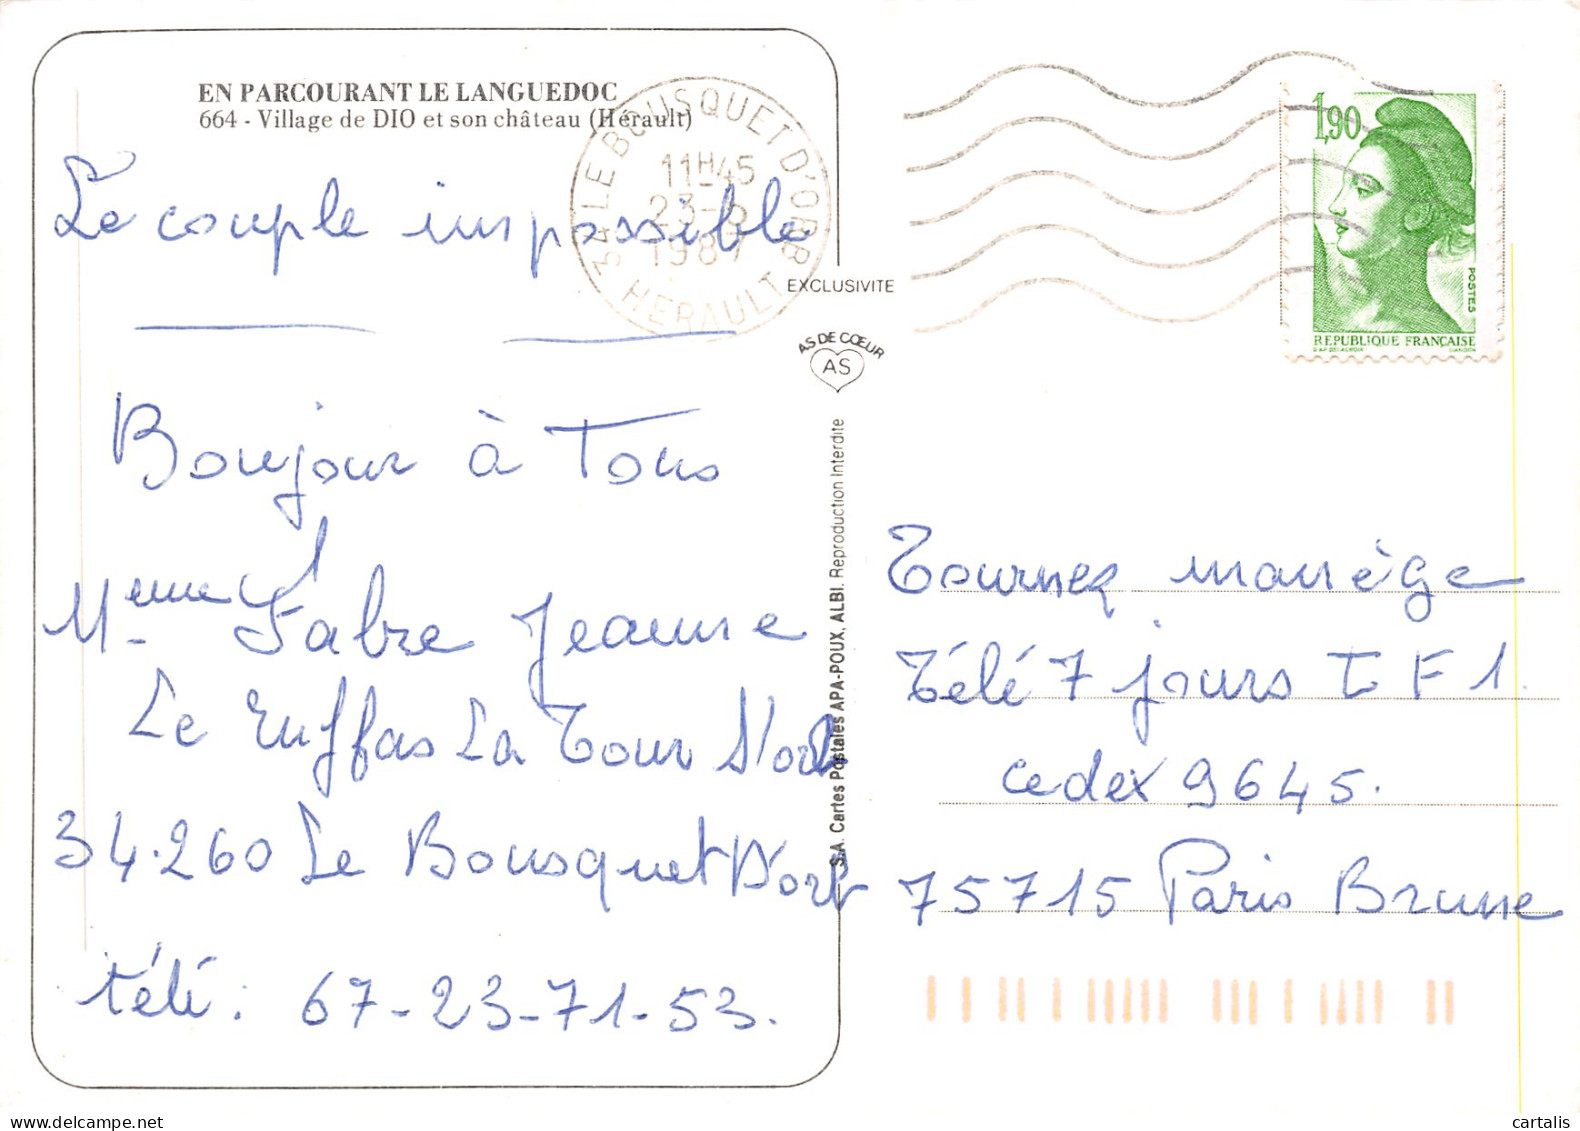 EN PARCOURANT LE LANGUEDOC
664 - Village de DIO et son château (Hérault)
34 LE BOUSQUET D'ORB
11H45
1987
HERAULT
Le couple impossible
Bonjour à Tous
Meme Fabre Jeanne
Le Ruffas La Tour S/orb
34.260 Le Bousquet D'orb
télé : 67-23-71-53.
EXCLUSIVITE
AS DE CŒUR
AS
S.A. Cartes Postales APA-POUX, ALBI. Reproduction Interdite
1,90
POSTES
REPUBLIQUE FRANÇAISE
D'AP. DELACROIX GANDON
Tournez manège
Télé 7 jours T F 1.
cedex 9645.
75715 Paris Brune
cartalis